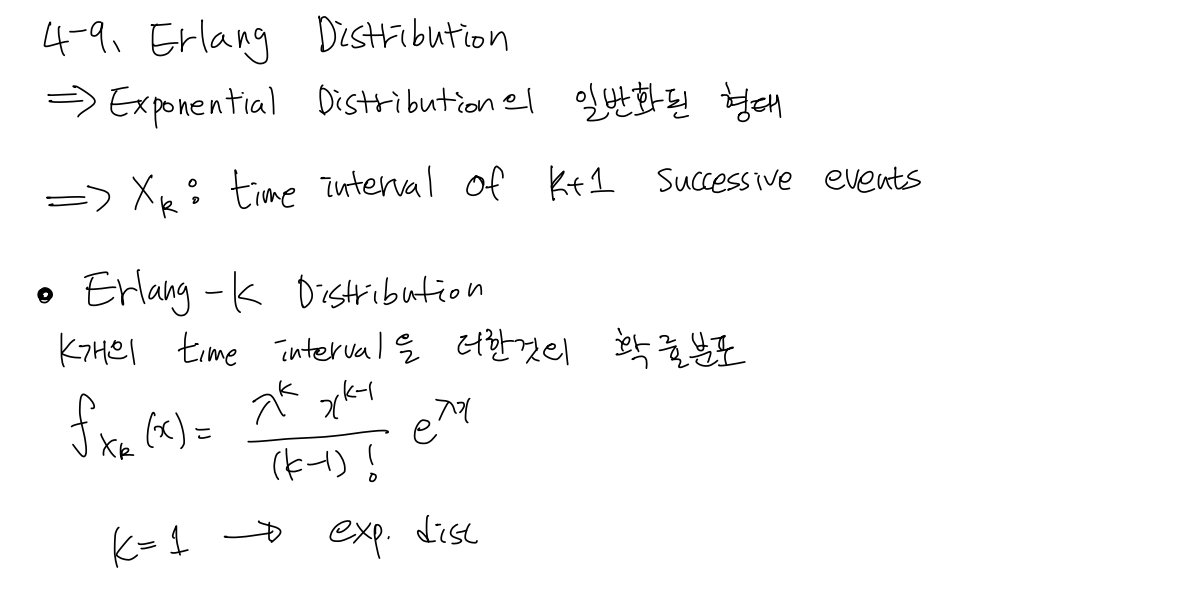 4-9. Erlang Distribution
⇒ Exponential Distribution의 일반화된 형태
⇒ X_k : time interval of k+1 successive events
• Erlang-k Distribution
k개의 time interval을 더한것의 확률분포
f_{X_k}(x) = \frac{λ^k x^{k-1}}{(k-1)!} e^{λx}
k=1 → exp. dist